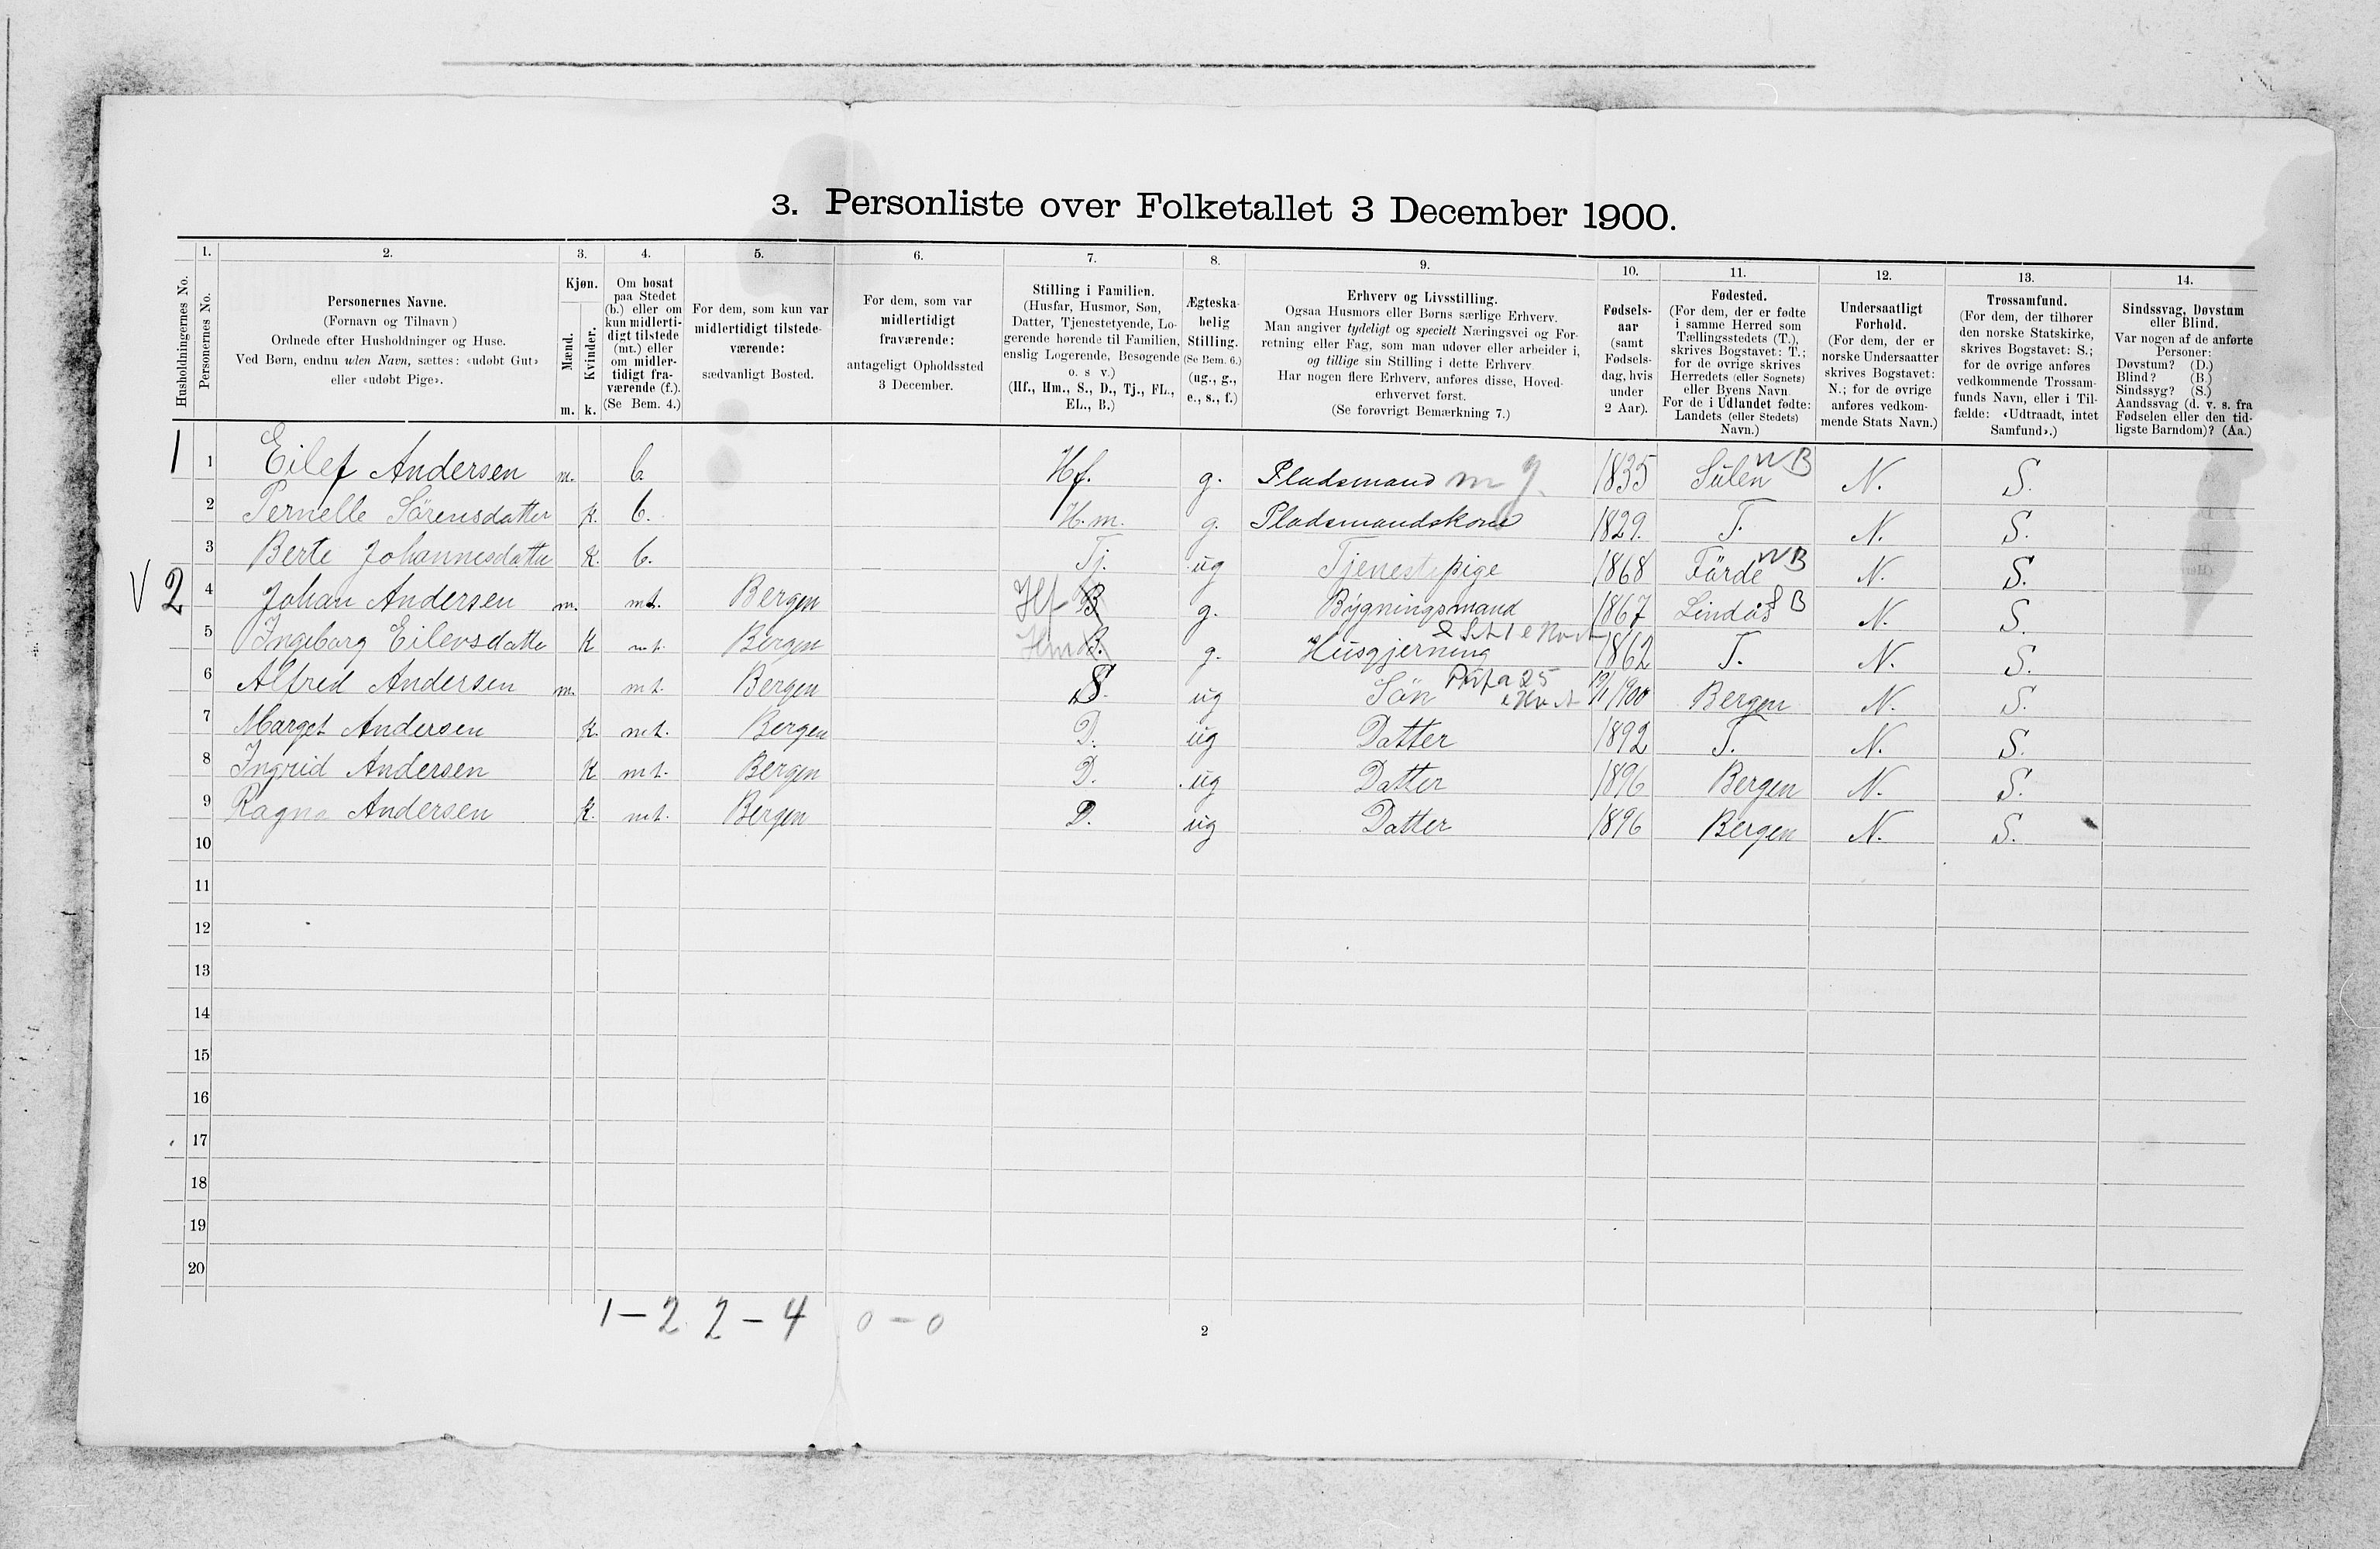 3. Personliste over Folketallet 3 December 1900.
1. 2. 3. 4. 5. 6. 7. 8. 9. 10. 11. 12. 13. 14.
Husholdningernes No.
Personernes No.
Personernes Navne.
(Fornavn og Tilnavn)
Ordnede efter Husholdninger og Huse.
Ved Børn, endnu uden Navn, sættes: «udøbt Gut»
eller «udøbt Pige».
Kjøn.
Mænd.
Kvinder.
m. k.
Om bosat
paa Stedet
(b.) eller om
kun midlerti-
digt tilstede
(mt.) eller
om midler-
tidigt fra-
værende (f.).
(Se Bem. 4.)
For dem, som kun var
midlertidigt tilstede-
værende:
sædvanligt Bosted.
For dem, som var
midlertidigt
fraværende:
antageligt Opholdssted
3 December.
Stilling i Familien.
(Husfar, Husmor, Søn,
Datter, Tjenestetyende, Lo-
gerende hørende til Familien,
enslig Logerende, Besøgende
o. s v.)
(Hf., Hm., S., D., Tj., FL.,
EL., B.)
Ægteska-
belig
Stilling.
(Se Bem. 6.)
(ug., g.,
e., s., f.)
Erhverv og Livsstilling.
Ogsaa Husmors eller Børns særlige Erhverv.
Man angiver tydeligt og specielt Næringsvei og For-
retning eller Fag, som man udøver eller arbeider i,
og tillige sin Stilling i dette Erhverv
Har nogen flere Erhverv, anføres disse, Hoved-
erhvervet først.
(Se forøvrigt Bemærkning 7.)
Fødsels-
aar
(samt
Fødsels-
dag, hvis
under
2 Aar).
Fødested.
(For dem, der er fødte
i samme Herred som
Tællingsstedets (T.),
skrives Bogstavet: T.;
for de øvrige skrives
Herredets (eller Sognets)
eller Byens Navn
For de i Udlandet fødte:
Landets (eller Stedets)
Navn.)
Undersaatligt
Forhold.
(For dem, der er
norske Undersaatter
skrives Bogstavet:
N.; for de øvrige
anføres vedkom-
mende Stats Navn.)
Trossamfund.
(For dem, der tilhører
den norske Statskirke,
skrives Bogstavet: S.;
for de øvrige anføres
vedkommende Trossam-
funds Navn, eller i Til-
fælde: «Udtraadt, intet
Samfund».)
Sindssvag, Døvstum
eller Blind.
Var nogen af de anførte
Personer:
Døvstum? (D.)
Blind? (B.)
Sindssyg? (S.)
Aandssvag (d. v. s. fra
Fødselen eller den tid-
ligste Barndom)? (Aa.)
1 1 Eilef Andersen m. b. Hf. g. Pladsmand m g. 1835 Sulen NB N. S.
2 Pernelle Sörensdatter k. b. H.m. g. Pladsmandskone 1829. T. N. S.
3 Berte Johannesdatte k. b. Tj. ug Tjenestepige 1868 Förde NB N. S.
V 2 4 Johan Andersen m. mt. Bergen Hf B g. Bygningsmand 1867 Lindås SB N. S.
5 Ingeborg Eilevsdatte k mt. Bergen Hm B. g. Husgjerning 1862 T. N. S.
6 Alfred Andersen m. mt. Bergen S. ug Sön 1900 Bergen N. S.
7 Marget Andersen k. mt. Bergen D. ug Datter 1892 T. N. S.
8 Ingrid Andersen k mt. Bergen D. ug Datter 1896 Bergen N. S.
9 Ragna Andersen k. mt. Bergen D. ug Datter 1896 Bergen N. S.
10
11
12
13
14
15
16
17
18
19
20
1 – 2 2 – 4 0 – 0
2